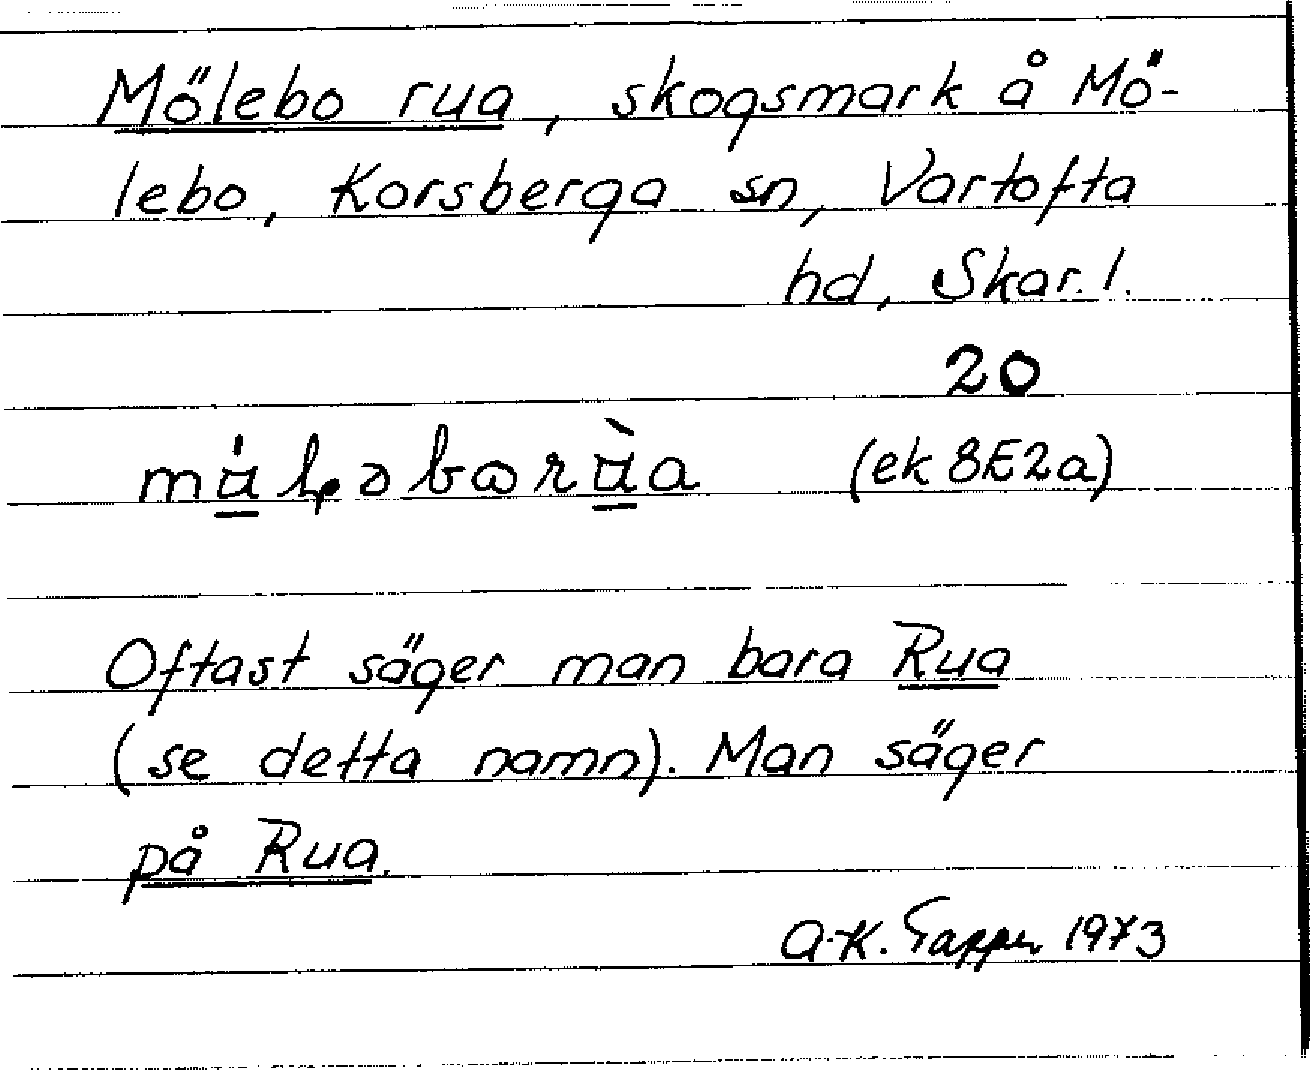 Mölebo rua, skogsmark å Mö-
lebo, Korsberga sn, Vartofta
hd, Skar. l.
20
(ek 8E2a)
Oftast säger man bara Rua
(se detta namn). Man säger
på Rua.
A-K. Tapper 1973